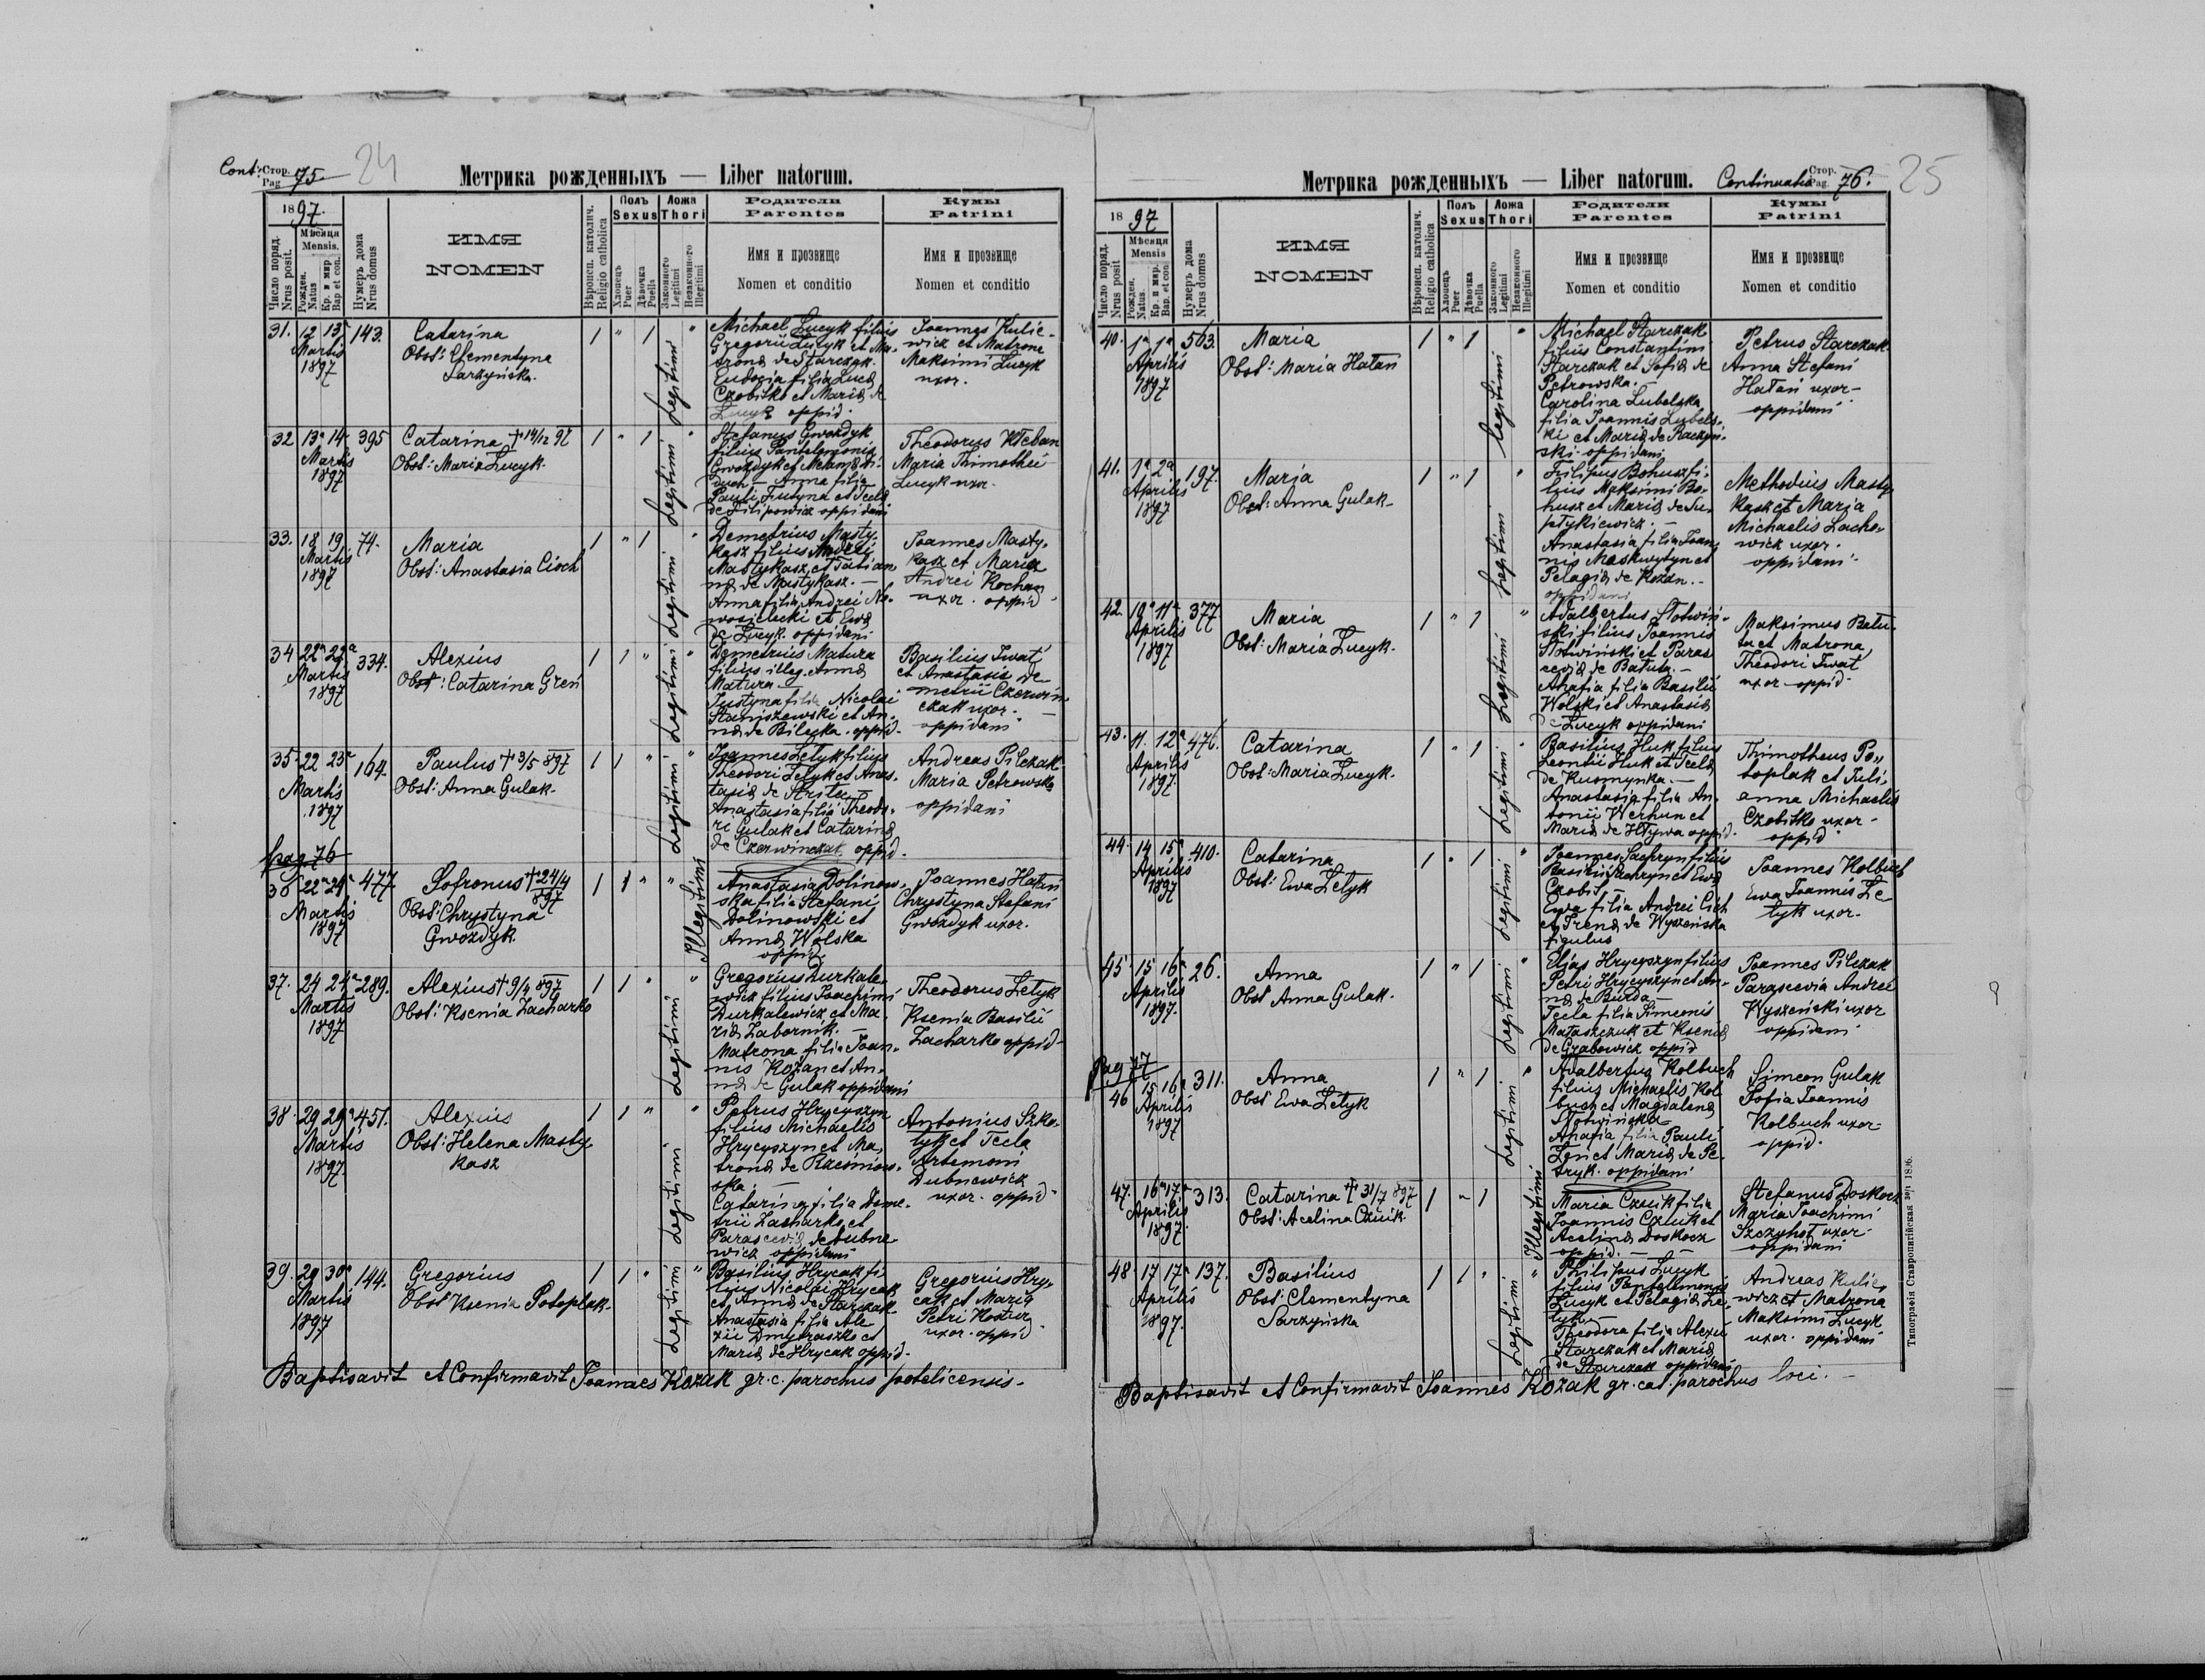 Cont. Стор. Pag. 75. 24
Метрика рожденныхъ — Liber natorum.
1897.
Число поряд. Nrus posit.
Мѣсяця Mensis.
Рожден. Natus
Кр. и мир Bap et con.
Нумеръ дома Nrus domus
ИМЯ
NOMEN
Вѣроисп. католич. Religio catholica
Полъ Sexus
Хлопецъ Puer
Дѣвочка Puella
Ложа Thori
Законного Legitimi
Незаконного Illegitimi
Родители
Parentes
Имя и прозвище
Nomen et conditio
Кумы
Patrini
Имя и прозвище
Nomen et conditio
31. 12 13 Martis 1897 143.
Catarina
Obst: Clementyna
Sarzyńska.
1 " 1 Legitimi "
Michael Lucyk filius
Gregorii Lucyk et Ma-
trona de Starczak.
Eudocia filia Lucæ
Czobitko et Mariæ de
Lucyk oppid.
Joannes Kulic-
wicz et Matrona
Maksimi Lucyk
uxor.
32 13 14 Martis 1897 395
Catarina † 14/12 97
Obst: Maria Lucyk.
1 " 1 Legitimi "
Stefanus Gwozdyk
filius Pantelemonis
Gwozdyk et Melaniæ Di-
duch — Anna filia
Pauli Futyna et Teclæ
de Filipowicz oppidani
Theodorus Kleban
Maria Thimothei
Lucyk uxor.
33. 18 19 Martis 1897 74.
Maria
Obst: Anastasia Cioch
1 " 1 Legitimi "
Demetrius Masty-
kasz filius Andrei
Mastykasz et Tatian
næ de Mastykasz. —
Anna filia Andrei No-
wosielecki et Ewæ
de Lucyk. oppidani
Joannes Masty-
kasz et Maria
Andrei Kochan
uxor. oppid.
34 22 22 Martis 1897 334.
Alexius
Obst: Catarina Greń
1 1 " Legitimi "
Demetrius Matura
filius illeg. Annæ
Matura —
Justyna filia Nicolai
Staniszewski et An-
næ de Bilecka. oppid.
Basilius Iwat
et Anastasia De-
metrii Czerwin-
czak uxor. —
oppidani
35 22 23 Martis 1897 164.
Paulus † 3/5 897
Obst: Anna Gulak.
1 1 " Legitimi "
Joannes Letyk filius
Theodori Letyk et Anas-
tasiæ de Stritec —
Anastasia filia Theodo-
ri Gulak et Catarinæ
de Czerwinczak oppid.
Andreas Pilczak
Maria Petrowska
oppidani
pag. 76
36 22 24 Martis 1897 477
Sofronus † 24/4 897
Obst: Chrystyna
Gwozdyk.
1 1 " " Illegitimi
Anastasia Dolinow-
ska filia Stefani
Dolinowski et
Annæ Wolska
oppid
Joannes Hatan
Chrystyna Stefani
Gwozdyk uxor.
37. 24 24 Martis 1897 289.
Alexius † 9/4 897
Obst: Ksenia Zacharko
1 1 " Legitimi "
Gregorius Durkale-
wicz filius Joachimi
Durkalewicz et Ma-
riæ Zabornik. —
Matrona filia Joan-
nis Kożan et An-
næ de Gulak oppidani
Theodorus Letyk
Ksenia Basilii
Zacharko oppid.
38. 29 29 Martis 1897 451.
Alexius
Obst: Helena Masty
kasz
1 1 " Legitimi "
Petrus Hrycyszyn
filius Michaelis
Hrycyszyn et Ma-
tronæ de Rzesniow-
ska. —
Catarina filia Deme-
trii Zacharko et
Parascevia de Dubne-
wicz oppidani
Antonius Szko-
tyk et Tecla
Artemoni
Dubnewicz
uxor. oppid.
39. 29 30 Martis 1897 144.
Gregorius
Obst Ksenia Potoplak.
1 1 " Legitimi "
Basilius Hrycak fi-
lius Nicolai Hrycak
et Annæ de Starczak.
Anastasia filia Ale-
xii Dmytraszko et
Mariæ de Hrycak oppid.
Gregorius Hry-
cak et Maria
Petri Kostur
uxor. oppid
Baptisavit et Confirmavit Joannes Kozak gr. c. parochus potelicensis.
Метрика рожденныхъ — Liber natorum. Continuatio Стор. Pag. 76. 25
1897
Число поряд. Nrus posit
Мѣсяця Mensis
Рожден. Natus.
Кр. и мир. Bap. et con
Нумеръ дома Nrus domus
ИМЯ
NOMEN
Вѣроисп. католич. Religio catholica
Полъ Sexus
Хлопецъ Puer
Дѣвочка Puella
Ложа Thori
Законного Legitimi
Незаконного Illegitimi
Родители
Parentes
Имя и прозвище
Nomen et conditio
Кумы
Patrini
Имя и прозвище
Nomen et conditio
40. 1 1 Aprilis 1897 503.
Maria
Obst: Maria Hatan
1 " 1 legitimi "
Michael Starczak
filius Constantini
Starczak et Sofiæ de
Petrowska. —
Carolina Lubelska
filia Joannis Lubels-
ki et Mariæ de Raczyn-
ski. oppidani
Petrus Starczak
Anna Stefani
Hatan uxor —
oppidani
41. 1 2 Aprilis 1897 197.
Maria
Obst: Anna Gulak —
1 " 1 Legitimi "
Filipus Bohusz fi-
lius Maksimi Bo-
husz et Mariæ de Su-
ptykiewicz. —
Anastasia filia Joan-
nis Moskwytyn et
Pelagiæ de Kozan. —
oppidani
Methodius Masty
kasz et Maria
Michaelis Lacho-
wicz uxor.
oppidani
42. 10 11 Aprilis 1897 377
Maria
Obst: Maria Lucyk.
1 " 1 Legitimi "
Adalbertus Slotwin-
ski filius Joannis
Slotwinski et Paras
ceviæ de Batuta. —
Ahafia filia Basilii
Wolski et Anastasiæ
de Lucyk oppidani
Maksimus Batu-
ta et Matrona,
Theodori Iwat
uxor oppid.
43. 11. 12 Aprilis 1897. 476.
Catarina
Obst: Maria Lucyk.
1 " 1 Legitimi "
Basilius Huk filius
Leontii Huk et Teclæ
de Kusmynka. —
Anastasia filia An-
tonii Werhun et
Mariæ de Hlywa oppid.
Thimotheus Po-
toplak et Juli-
anna Michaelis
Czobitko uxor —
oppid
44. 14 15 Aprilis 1897 410.
Catarina
Obst: Ewa Letyk
1 " 1 Legitimi "
Joannes Sachryn filius
Basilii Sachryn et Ewæ
Czobit —
Ewa filia Andrei Cich
et Irenæ de Wyszeńska
figulus
Joannes Kolbuch
Ewa Joannis Le-
tyk uxor.
45 15 16 Aprilis 1897. 26.
Anna
Obst Anna Gulak.
1 " 1 Legitimi "
Elias Hrycyszyn filius
Petri Hrycyszyn et An-
næ de Burda —
Tecla filia Simeonis
Mataszczuk et Kseniæ
de Grabowicz oppid
Joannes Pilczak
Parascevia Andrei
Wyszeński uxor
oppidani
pag 77
46 15 16 Aprilis 1897 311.
Anna
Obst Ewa Letyk
1 " 1 Legitimi "
Adalbertus Kolbuch
filius Michaelis Kol-
buch et Magdalenæ
Slotwińska
Ahafia filia Pauli
Len et Mariæ de Pe-
tryk. oppidani
Simeon Gulak
Sofia Joannis
Kolbuch uxor —
oppid.
47. 16 17 Aprilis 1897 313.
Catarina † 31/7 897
Obst: Acelina Czuik.
1 " 1 Illegitimi
Maria Czuik filia
Joannis Czuik et
Acelinæ Doskocz
oppid. —
Stefanus Doskocz
Maria Joachimi
Szczyhot uxor —
oppidani
48. 17 17 Aprilis 1897. 137.
Basilius
Obst: Clementyna
Sarzyńska
1 1 " Legitimi "
Philipus Lucyk
filius Pantelemonis
Lucyk et Pelagiæ Le-
tyk —
Theodora filia Alexii
Starczak et Mariæ
de Starczak oppidani
Andreas Kulic-
wicz et Matrona
Maksimi Lucyk
uxor. oppidani
Baptisavit et Confirmavit Joannes Kozak gr. cat. parochus loci. —
Типографія Ставропигійская 1896.